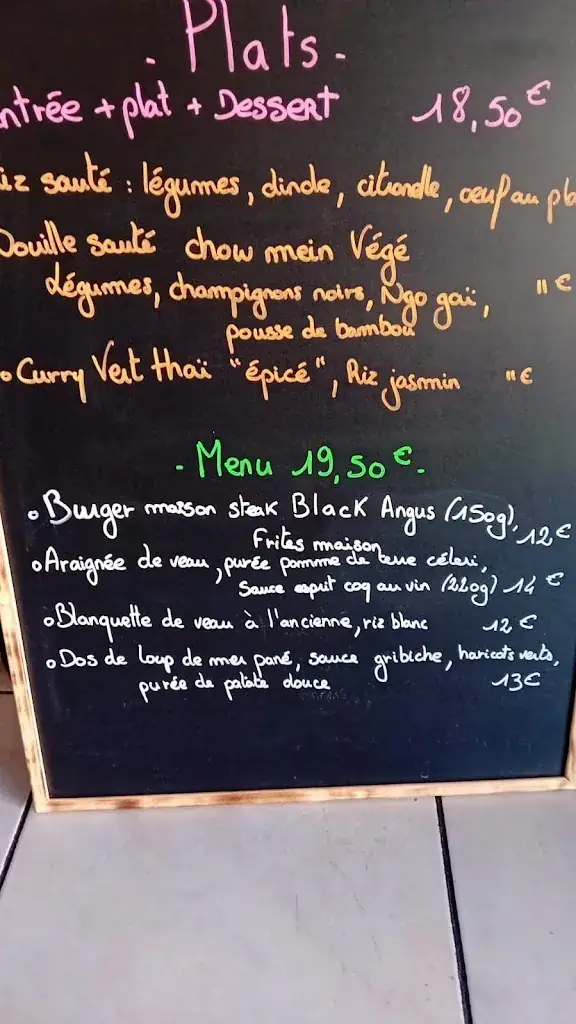 . Plats .
ntrée + plat + DESSERT 18,50€
iz sauté : légumes, dinde, citronelle, oeuf au pla
Douille sauté chow mein Végé
Légumes, champignons noirs, Ngo gaï, 11€
pousse de bambou
• Curry Vert thaï "épicé", Riz jasmin 11€
. Menu 19,50€.
• Burger maison steak Black Angus (150g), 12€
Frites maison
• Araignée de veau, purée pomme de terre céleri,
Sauce esprit coq au vin (220g) 14€
• Blanquette de veau à l'ancienne, riz blanc 12€
• Dos de loup de mer pané, sauce gribiche, haricots verts,
purée de patate douce 13€